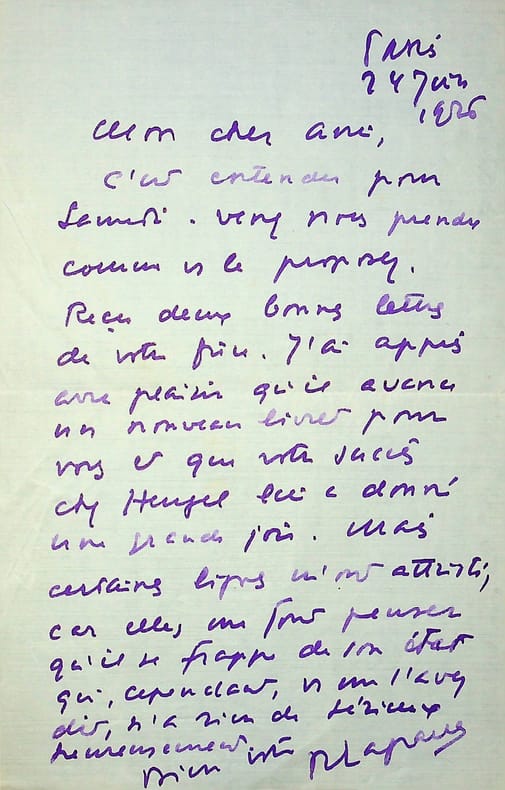 Paris
24 Juin
1926
Mon cher ami,
C'est entendu pour
Samedi. Venez nous prendre
comme vs le proposez.
Reçu deux bonnes lettres
de votre frère. J'ai appris
avec plaisir qu'il avance
un nouveau livret pour
vous et que votre succès
chez Heugel lui a donné
une grande joie. Mais
certaines lignes m'ont attristé,
car elles me font penser
qu'il se frappe de son état
qui, cependant, vs me l'avez
dit, n'a rien de sérieux
heureusement.
Bien votre